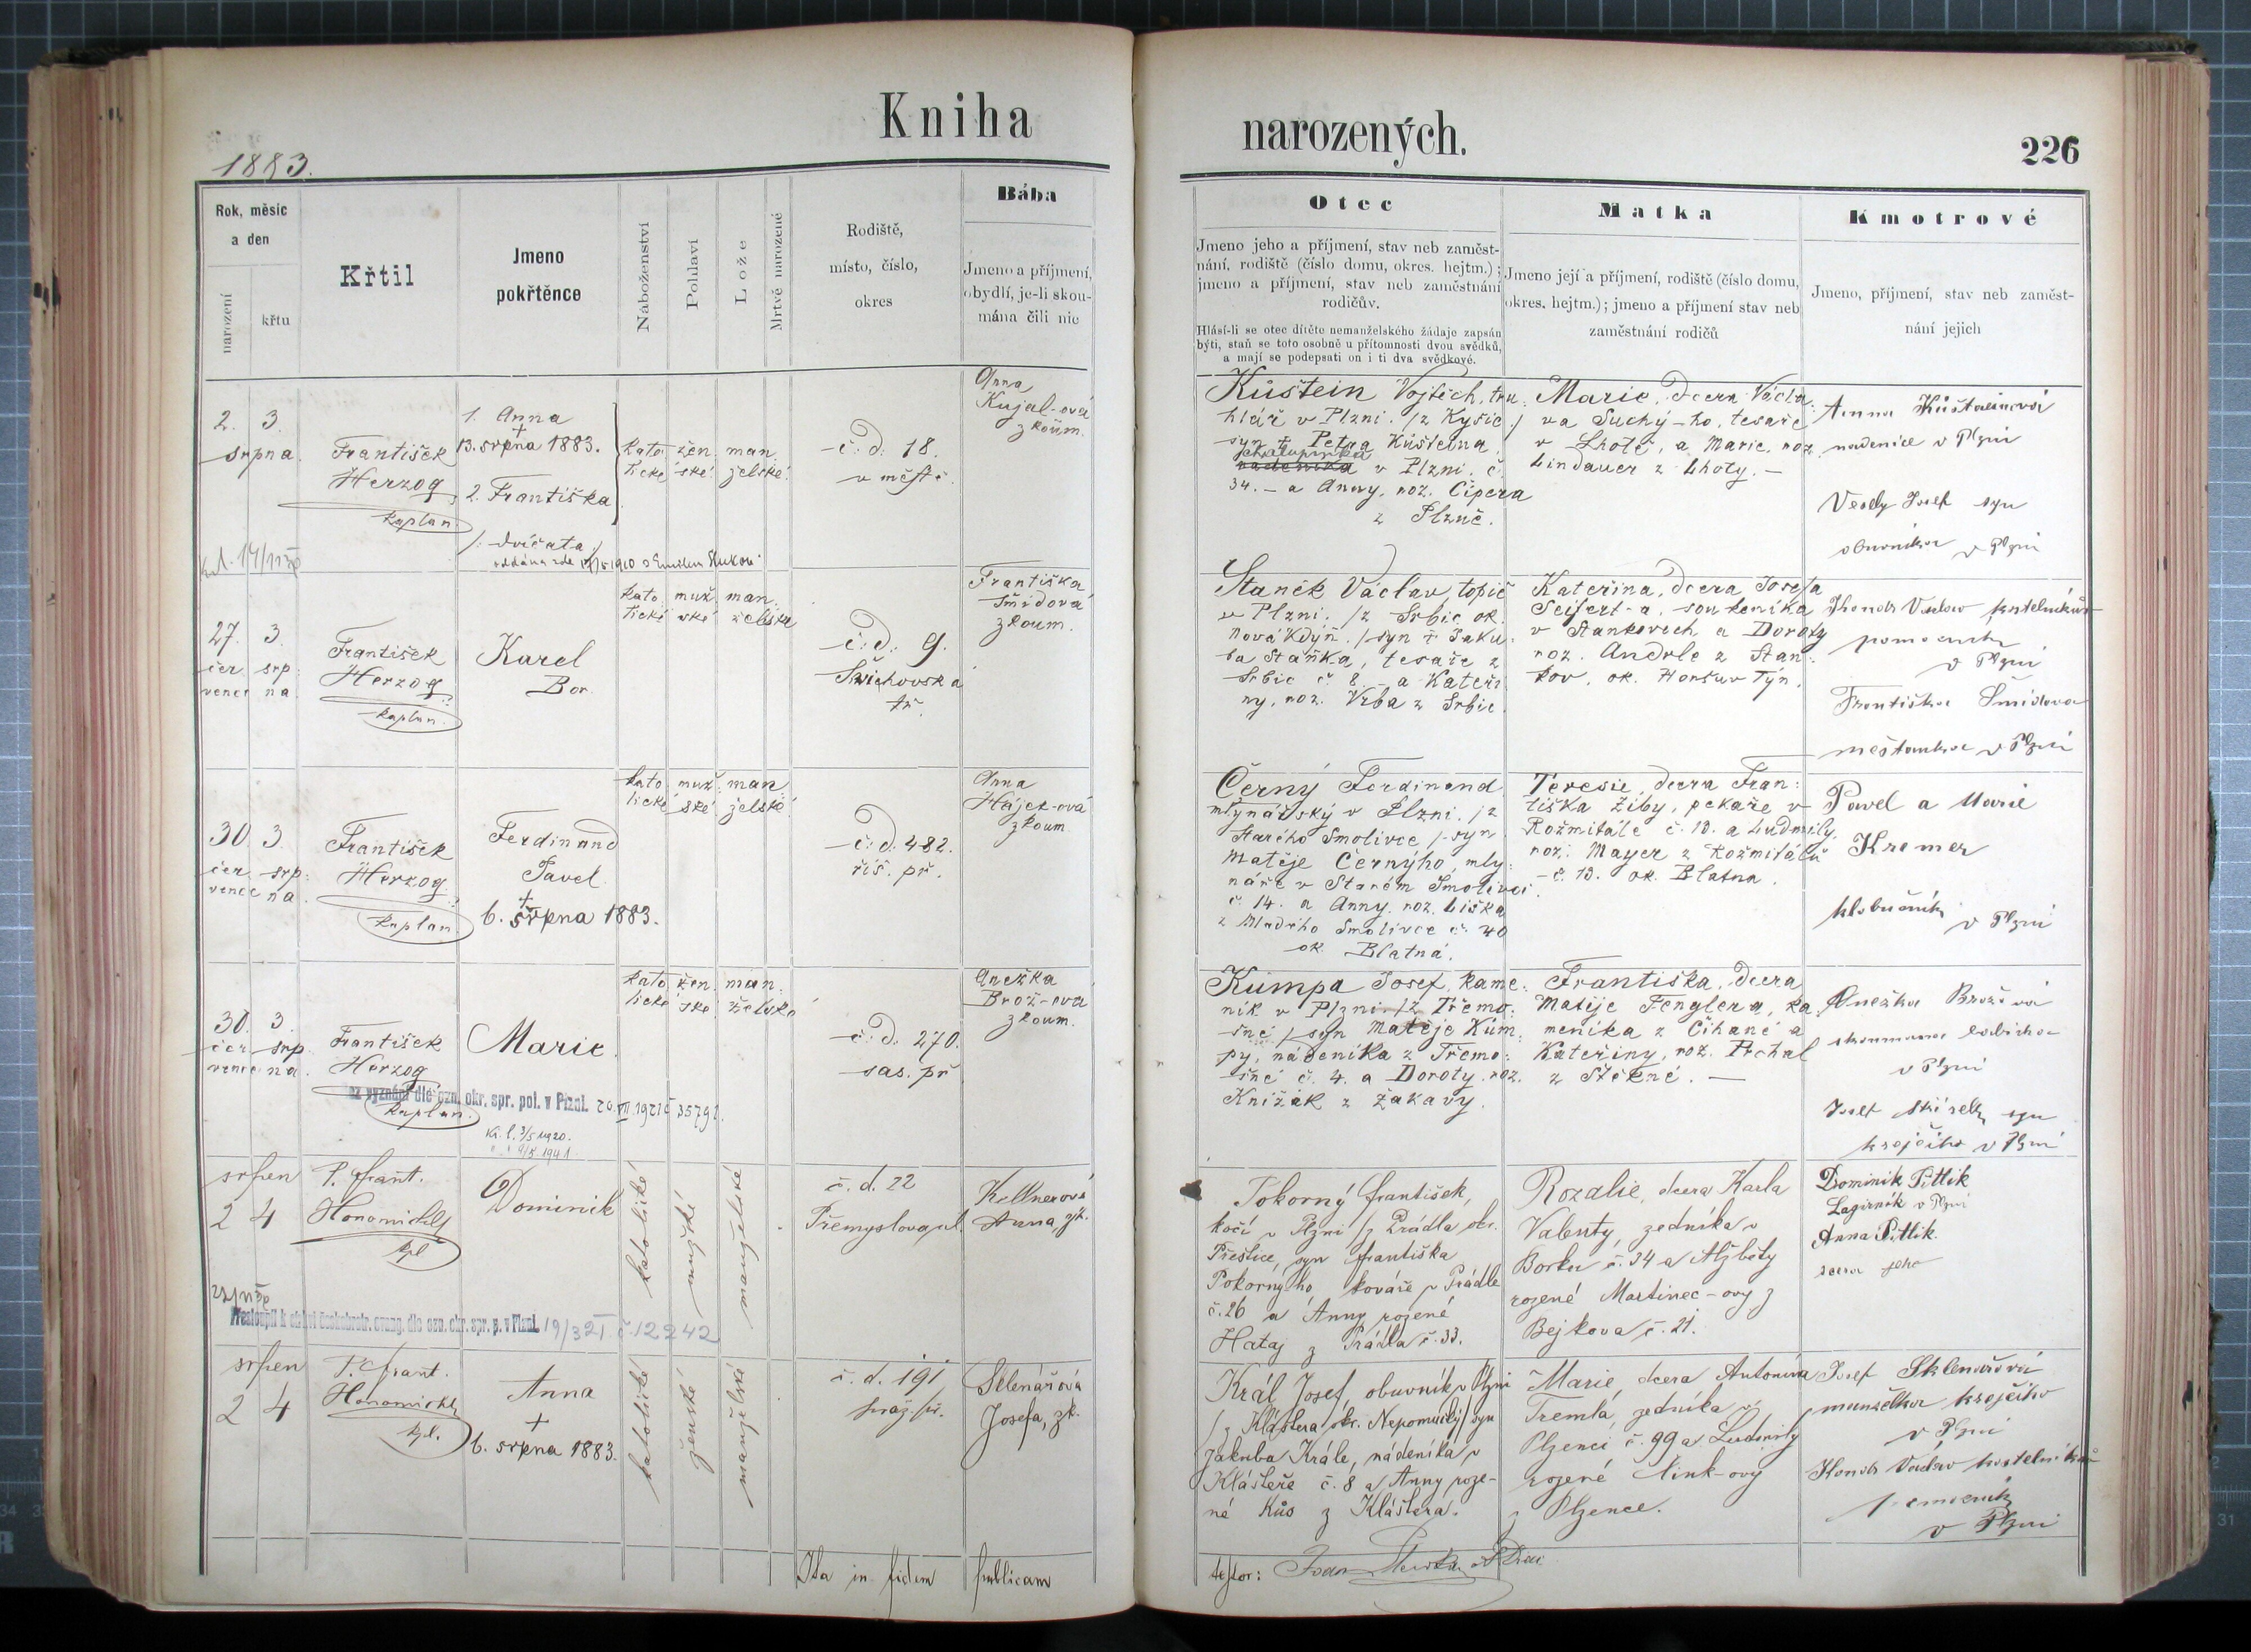 Kniha
narozených.
226
1883.
Rok, měsíc
a den
narození
křtu
Křtil
Jmeno
pokřtěnce
Náboženství
Pohlaví
Lože
Mrtvě narozené
Rodiště,
místo, číslo,
okres
Bába
Jmeno a příjmení,
obydlí, je-li skou-
mána čili nic
Otec
Jmeno jeho a příjmení, stav neb zaměst-
nání, rodiště (číslo domu, okres. hejtm.);
jmeno a příjmení, stav neb zaměstnání
rodičův.
Hlásí-li se otec dítěte nemanželského žádaje zapsán
býti, staň se toto osobně u přítomnosti dvou svědků,
a mají se podepsati on i ti dva svědkové.
Matka
Jmeno její a příjmení, rodiště (číslo domu,
okres. hejtm.); jmeno a příjmení stav neb
zaměstnání rodičů
Kmotrové
Jmeno, příjmení, stav neb zaměst-
nání jejich
2. 3.
srpna.
František
Herzog
kaplan.
1. Anna
+
13. srpna 1883.
2. Františka
/: dvíčata :/
kato: žen: man:
lické ské. želské.
č: d: 18.
v městě.
Anna
Kujal-ová
zkoum.
Kůstein Vojtěch, tru:
hlář v Plzni. /z Kyšic/
syn + Petra Kůsteina,
chalupníka
nádeníka v Plzni. č.
34. – a Anny, roz. Cipera
z Plzně.
Marie, dcera Václa:
va Suchý-ho, tesaře
v Lhotě, a Marie, roz.
Lindauer z Lhoty. –
Anna Kůsteinová
nádenice v Plzni
Veselý Josef syn
obuvníka v Plzni
27. 3.
čer: srp:
vence na.
František
Herzog
kaplan.
Karel
Bor.
kato: muž: man:
lické ské želské
č: d: 9.
Šwichovská
tř.
Františka
Šmídová
zkoum.
Staněk Václav, topič
v Plzni. /z Srbic ok.
Nová Kdyň./ syn + Jaku:
ba Staňka, tesaře z
Srbic č. 8. – a Kateři
ny, roz. Vrba z Srbic.
Kateřina, dcera Josefa
Seifert-a, soukeníka
v Stankovich a Doroty
roz. Andrle z Stan:
kov, ok. Horšův Týn.
Václav kostelníkův
pomocník
v Plzni
Františka Šmídova
měštanka v Plzni
30. 3.
čer: srp:
vence na.
František
Herzog
kaplan.
Ferdinand
Pavel
+
6. srpna 1883.
kato: muž: man:
lické ské želské.
č: d: 482.
říš. př.
Anna
Hájek-ová
zkoum.
Černý Ferdinand
mlynářský v Plzni. /z
Starého Smolivce /syn
Matěje Černýho, mly:
náře v Starém Smolivci
č. 14. a Anny, roz. Liška
z Mladého Smolivce č. 40
ok. Blatná.
Teresie, dcera Fran:
tiška Žiby, pekaře v
Rožmitále č. 13. a Ludmily,
roz. Mayer z Rožmitálů
– č. 13. ok. Blatna.
Pavel a Marie
Kremer
klobučník
v Plzni
30. 3.
čer: srp:
vence na.
František
Herzog
kaplan.
Marie.
kato: žen: man:
lické ské. želské
č: d: 270.
sas. př.
Anežka
Brož-ová
zkoum.
bez vyznání dle ozn. okr. spr. pol. v Plzni. 20. VII. 1921 č 35791.
Kůmpa Josef, kame:
ník v Plzni. /z Třemo:
šné/ syn Matěje Kům:
py, nádeníka z Třemo:
šné č. 4. a Doroty, roz.
Knížek z Žakavy.
Františka, dcera
Matěje Fenglera, ka:
meníka z Číhané a
Kateřiny, roz.
z Stěkné. –
Anežka Brožová
v Plzni
Josef syn
krejčího v Plzni
srpen
2 4
P. Frant.
Honomichl
kpl
Dominik
katolické
mužské
manželské
č. d. 22
Přemyslova ul.
Kellnerová
Anna, zk.
Přestoupil k církvi českobratr. evang. dle ozn. okr. spr. p. v Plzni. 19/3 21. č. 12242
Pokorný František,
kočí v Plzni /z Prádla okr.
Přeštice, syn Františka
Pokorného kováře v Prádle
č. 26 a Anny rozené
Hataj z Prádla č. 33.
Rozalie, dcera Karla
Valenty, zedníka v
Borku č. 34 a Alžběty
rozené Martinec-ovy z
Bejkova č. 21.
Dominik Pitlik
v Plzni
Anna Pitlik
dcera jeho
srpen
2 4
P. Frant.
Honomichl
kpl.
Anna
+
6. srpna 1883.
katolické
ženské
manželské
č. d. 191
praž. př.
Sklenářová
Josefa, zk.
Král Josef, obuvník v Plzni
/z Kláštera okr. Nepomucký/ syn
Jakuba Krále, nádeníka v
Klášteře č. 8 a Anny roze-
né Kůs z Kláštera.
Marie dcera Antonína
Tremla, zedníka v
Plzenci č. 99 a Ludmily
rozené Vink-ovy
z Plzence.
Josef Sklenářová
manželka krejčího
v Plzni
Václav kostelníkův
pomocník
v Plzni
Ita in fidem publicam
testor: